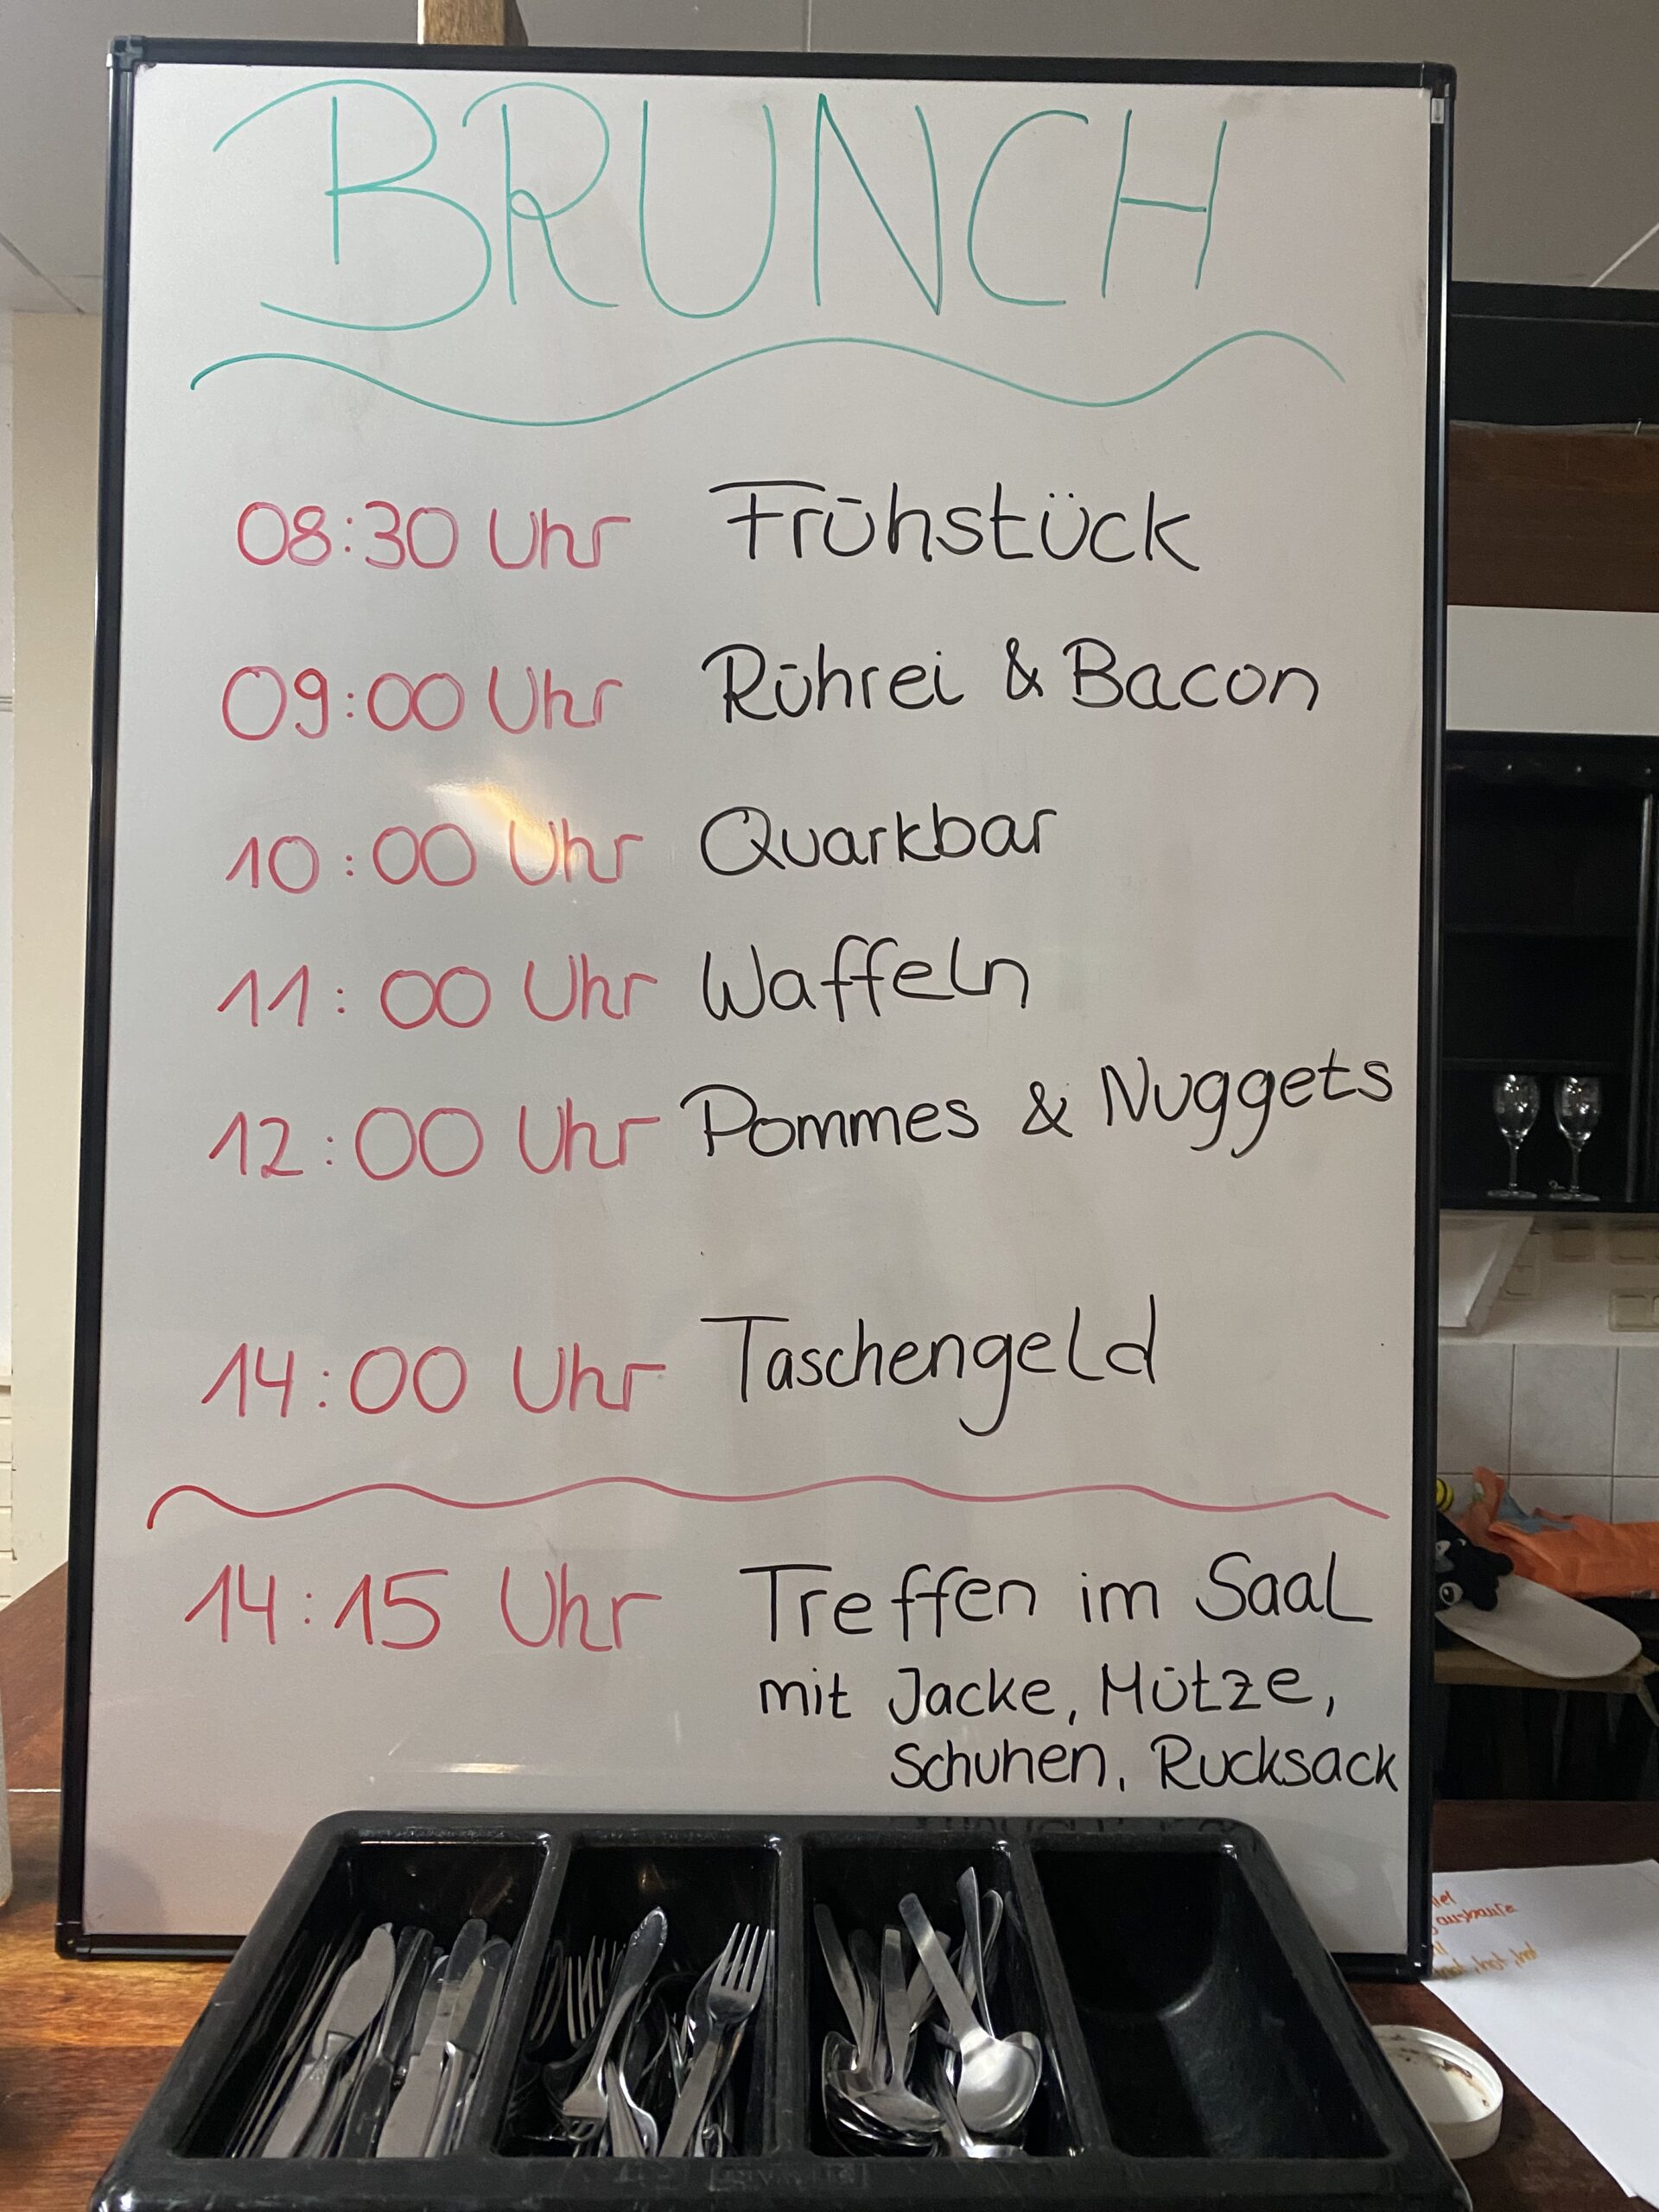 BRUNCH
08:30 Uhr Frühstück
09:00 Uhr Rührei & Bacon
10:00 Uhr Quarkbar
11:00 Uhr Waffeln
12:00 Uhr Pommes & Nuggets
14:00 Uhr Taschengeld
14:15 Uhr Treffen im Saal
mit Jacke, Mütze,
Schuhen, Rucksack